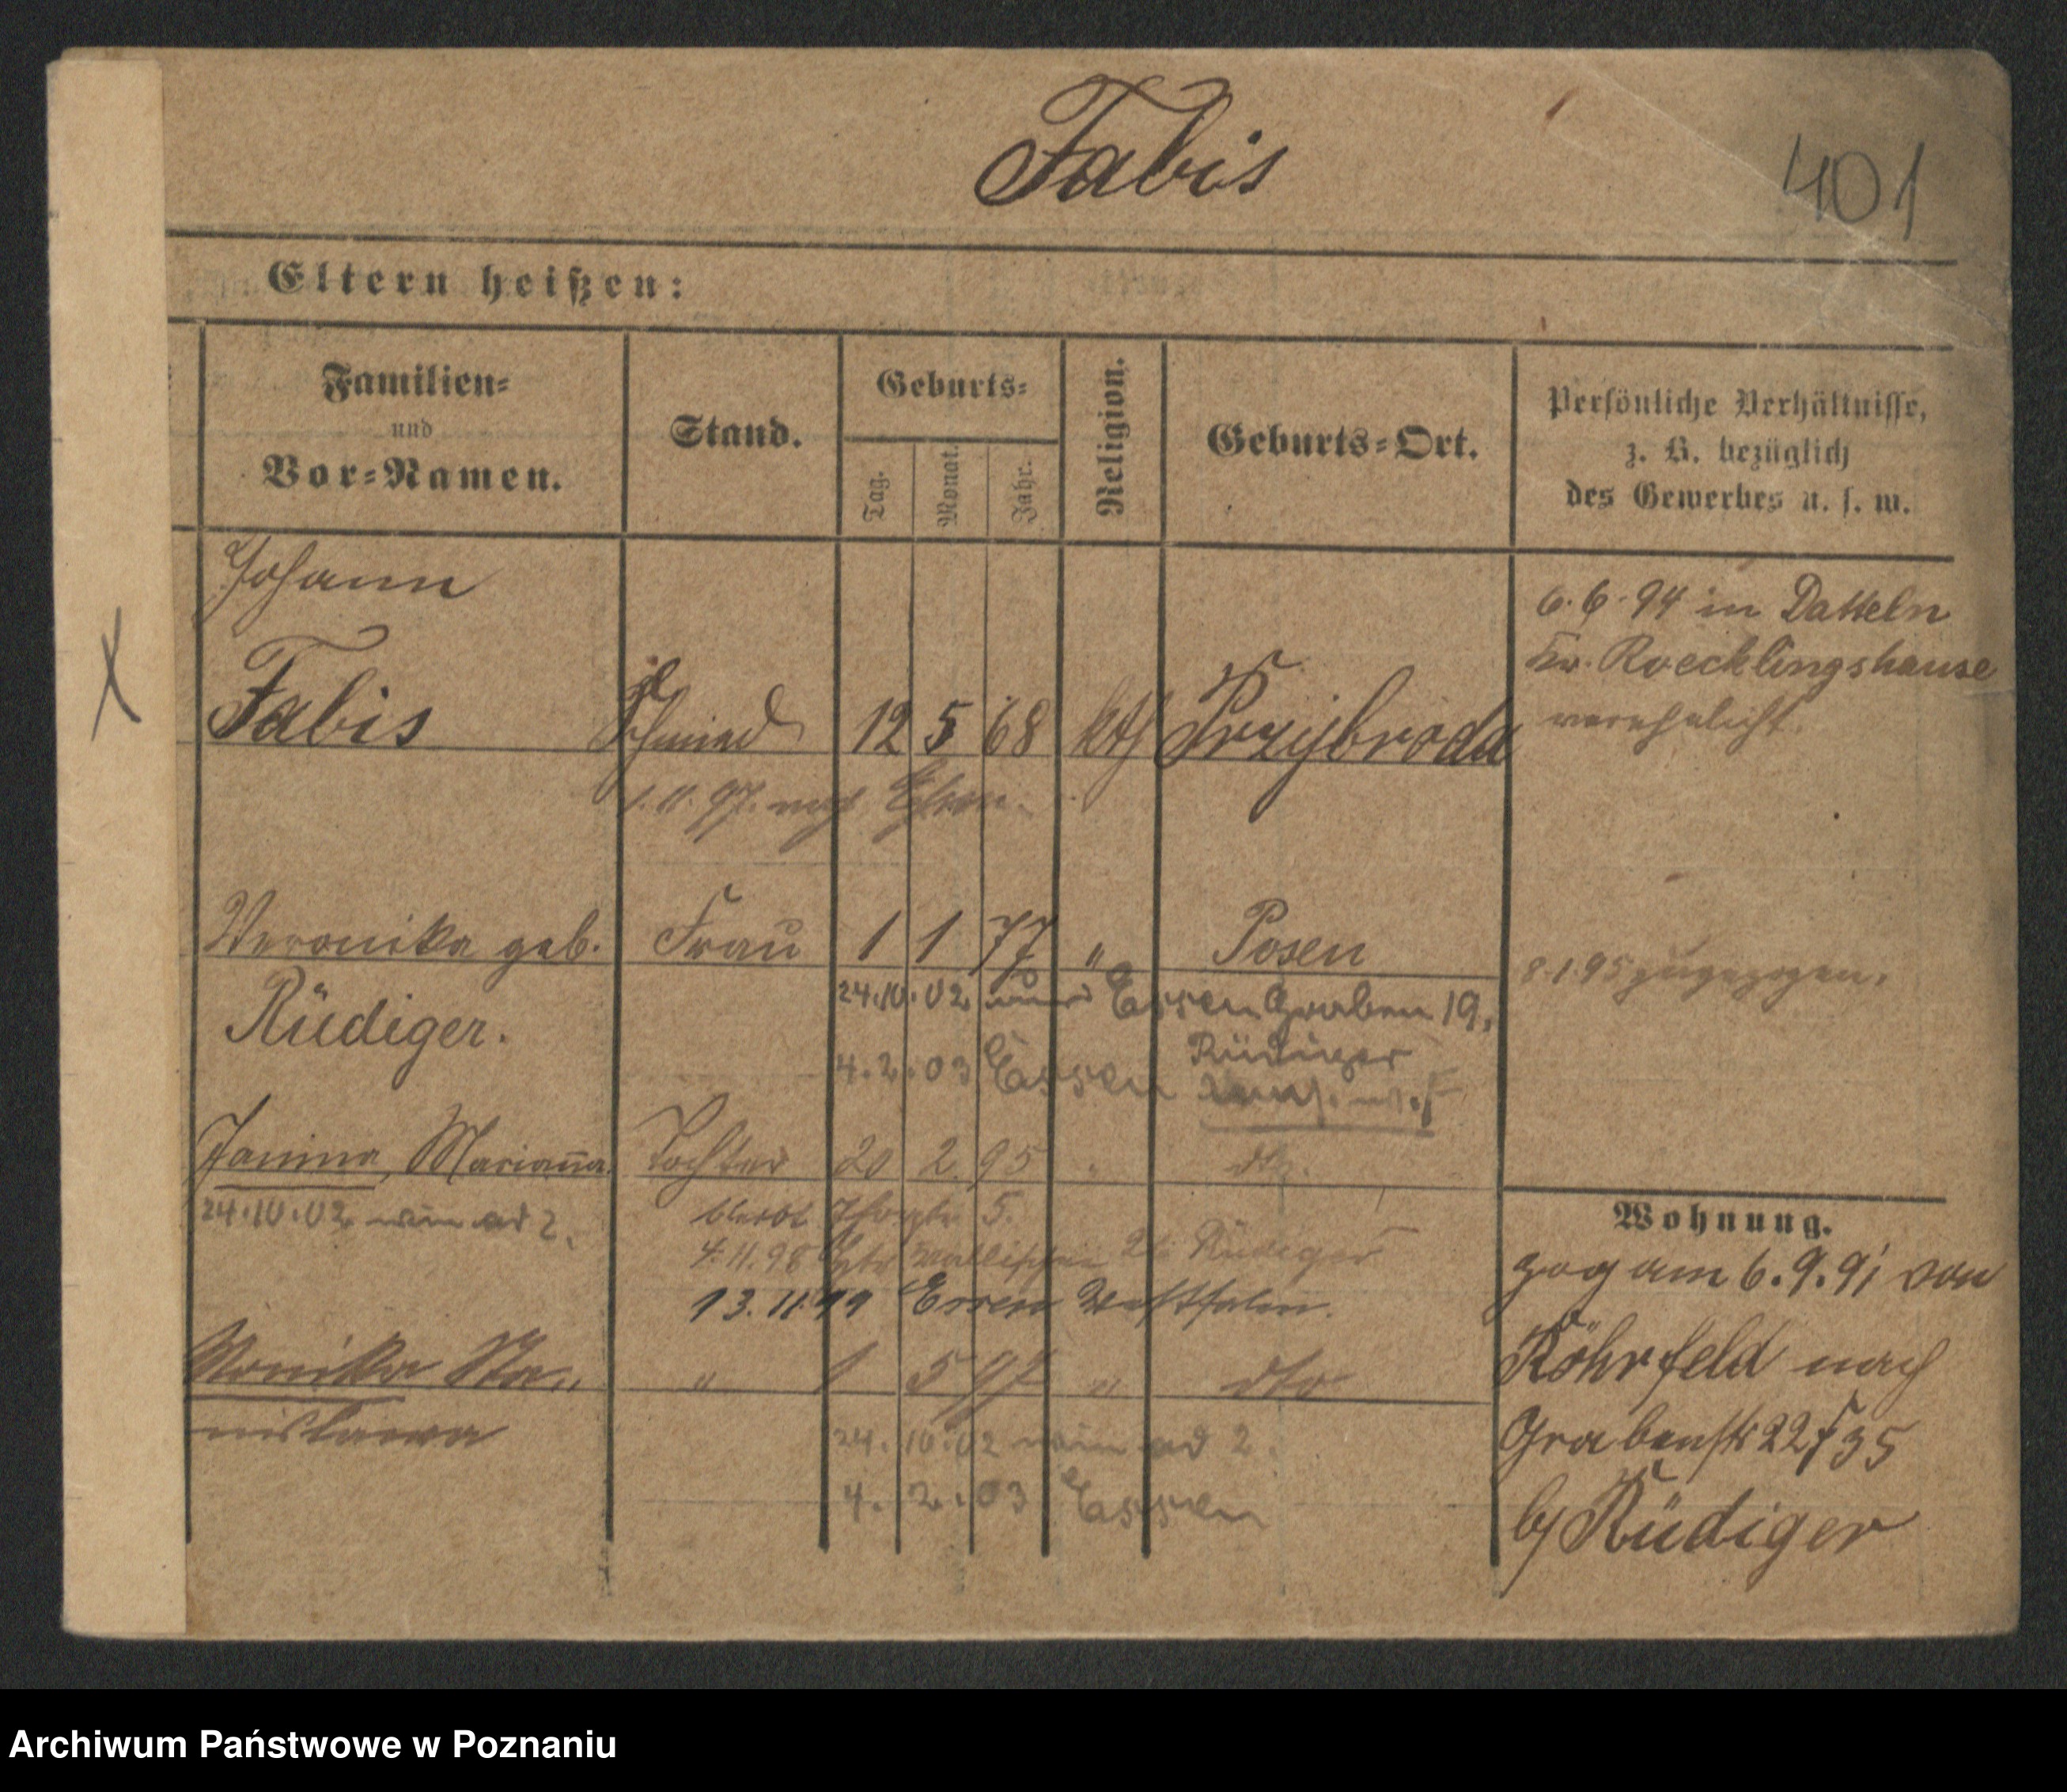 Fabis
401
Eltern heißen:
Familien-
und
Vor-Namen.
Stand.
Geburts-
Tag.
Monat.
Jahr.
Religion.
Geburts-Ort.
Persönliche Verhältnisse,
z. B. bezüglich
des Gewerbes u. s. w.
Johann
Fabis Schmied 12 5 68 kth Przybroda
6.6.94 in Datteln
Kr. Roecklingshause
verehelicht.
X
1.11.97. nach Essen.
Veronika geb. Frau 1 1 77 " Posen
8.1.95 zugezogen.
Rüdiger.
24.10.02 Essen Graben 19,
Rüdiger
4.2.03 Essen
Janina, Marianna. Tochter 20 2. 95 " dto.
24.10.02 ad 2.
bleibt 5.
4.11.98 Wallischei Rüdiger
13.11.99 Essen Westfalen.
Monika Sta= " 1 5 97 " dto
nislawa
24.10.02 ad 2.
4.2.03 Essen
Wohnung.
zog am 6.9.91 von
Röhrfeld nach
Grabenstr 22 f 35
by Rüdiger
Archiwum Państwowe w Poznaniu